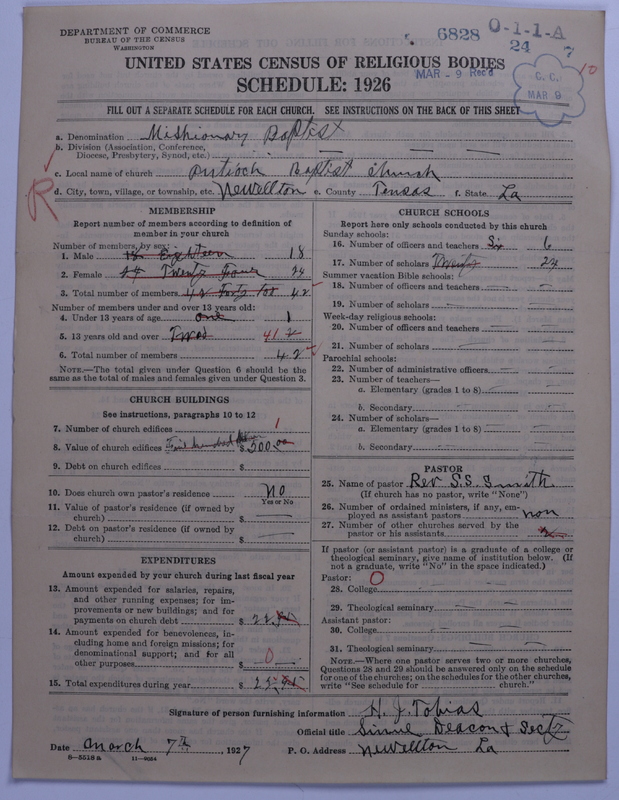 DEPARTMENT OF COMMERCE
BUREAU OF THE CENSUS
WASHINGTON
6828 O-1-1-A
24 7
UNITED STATES CENSUS OF RELIGIOUS BODIES
MAR - 9 Rec'd
SCHEDULE: 1926
C. C.
MAR 9
10
FILL OUT A SEPARATE SCHEDULE FOR EACH CHURCH. SEE INSTRUCTIONS ON THE BACK OF THIS SHEET
a. Denomination Missionary Baptist
b. Division (Association, Conference, Diocese, Presbytery, Synod, etc.)
c. Local name of church Antioch Baptist Church
R
d. City, town, village, or township, etc. Newellton e. County Tensas f. State La
MEMBERSHIP
Report number of members according to definition of member in your church
Number of members, by sex:
1. Male 18 Eighteen 18
2. Female 24 Twenty Four 24
3. Total number of members 42 Forty 42
Number of members under and over 13 years old:
4. Under 13 years of age one 1
5. 13 years old and over 41
6. Total number of members 42
NOTE.—The total given under Question 6 should be the same as the total of males and females given under Question 3.
CHURCH BUILDINGS
See instructions, paragraphs 10 to 12
7. Number of church edifices 1
8. Value of church edifices hundred $ 200.00
9. Debt on church edifices $
10. Does church own pastor's residence No
Yes or No
11. Value of pastor's residence (if owned by church) $
12. Debt on pastor's residence (if owned by church) $
EXPENDITURES
Amount expended by your church during last fiscal year
13. Amount expended for salaries, repairs, and other running expenses; for improvements or new buildings; and for payments on church debt $
14. Amount expended for benevolences, including home and foreign missions; for denominational support; and for all other purposes $ 0
15. Total expenditures during year $
CHURCH SCHOOLS
Report here only schools conducted by this church
Sunday schools:
16. Number of officers and teachers Six 6
17. Number of scholars
Summer vacation Bible schools:
18. Number of officers and teachers
19. Number of scholars
Week-day religious schools:
20. Number of officers and teachers
21. Number of scholars
Parochial schools:
22. Number of administrative officers
23. Number of teachers—
a. Elementary (grades 1 to 8)
b. Secondary
24. Number of scholars—
a. Elementary (grades 1 to 8)
b. Secondary
PASTOR
25. Name of pastor Rev S.S. Smith
(If church has no pastor, write "None")
26. Number of ordained ministers, if any, employed as assistant pastors non
27. Number of other churches served by the pastor or his assistants
If pastor (or assistant pastor) is a graduate of a college or theological seminary, give name of institution below. (If not a graduate, write "No" in the space indicated.)
Pastor: O
28. College
29. Theological seminary
Assistant pastor:
30. College
31. Theological seminary
NOTE.—Where one pastor serves two or more churches, Questions 28 and 29 should be answered only on the schedule for one of the churches; on the schedules for the other churches, write "See schedule for church."
Signature of person furnishing information H. J. Tobias
Official title Deacon & Secty
Date March 7th 1927 P. O. Address Newellton La
6—5518 a 11—9054